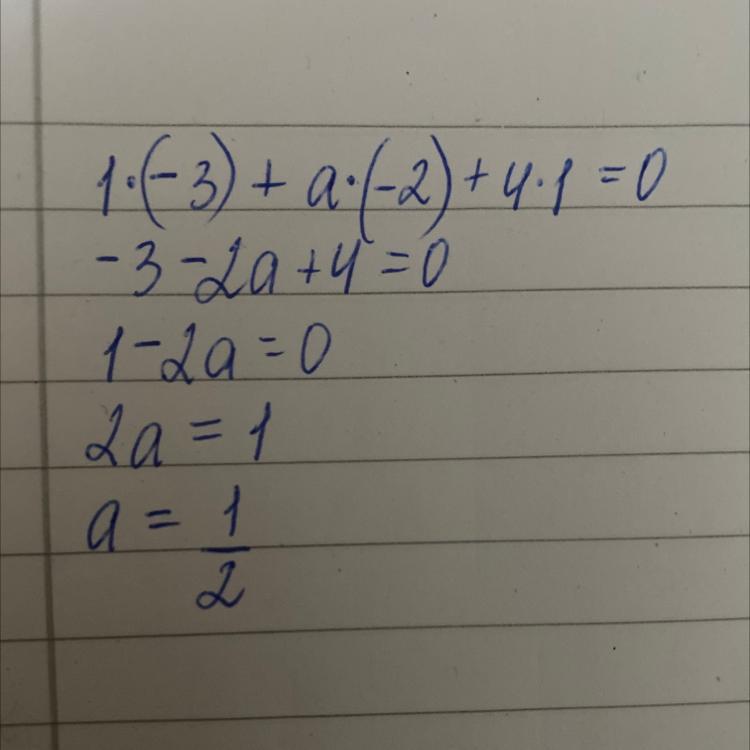 1·(-3) + a·(-2) + 4·1 = 0
-3 - 2a + 4 = 0
1 - 2a = 0
2a = 1
a = 1/2